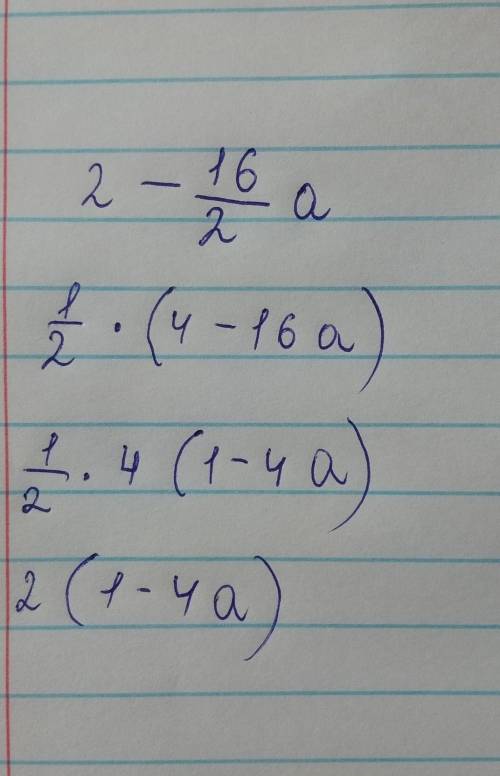 2 - 16/2 a
1/2 · (4 - 16 a)
1/2 · 4 (1 - 4 a)
2 (1 - 4 a)